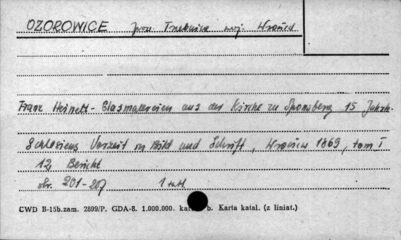 OZOROWICE pow. Trzebnica woj. Wrocław
Franz Heinetz - Glasmalereien aus der Kirche zu 15 Jahrh.
Schlesiens Vorzeit in Bild und Schrift, Wrocław 1869, tom I
12 Bericht
str. 201-207
CWD B-15b.zam. 2899/P. GDA-8. 1.000.000. b. Karta katal. (z liniat.)